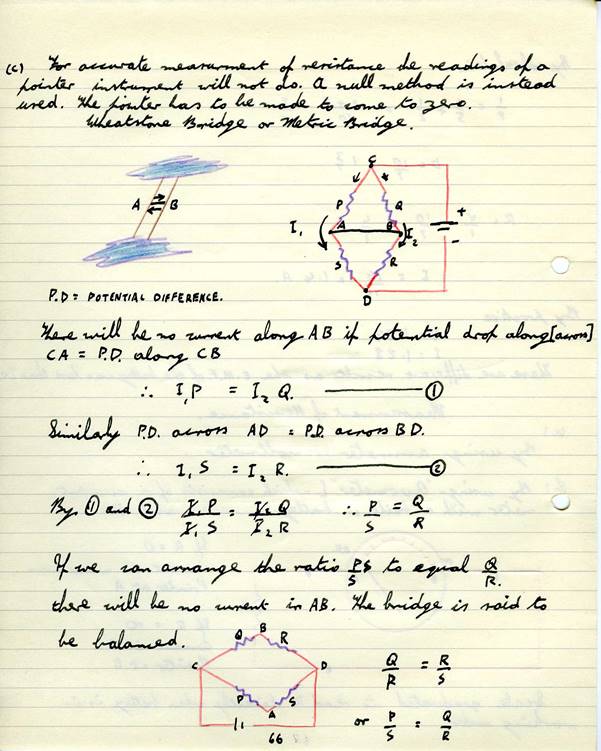 (c) For accurate measurment of resistance the readings of a
pointer instrument will not do. A null method is instead
used. The pointer has to be made to come to zero.
Wheatstone Bridge or Metric Bridge.
A B
C
P Q
I₁ A B I₂
+
-
S R
D
P.D = POTENTIAL DIFFERENCE.
There will be no current along AB if potential drop along [across]
CA = P.D. along CB
∴ I₁P = I₂ Q. ①
Similarly P.D. across AD = P.D. across BD.
∴ I₁ S = I₂ R. ②
By ① and ② I₁ P / I₁ S = I₂ Q / I₂ R ∴ P/S = Q/R
If we can arrange the ratio P/S to equal Q/R.
there will be no current in AB. The bridge is said to
be balanced.
B
Q R
C D
P S
A
Q/R = R/S
or P/S = Q/R
66